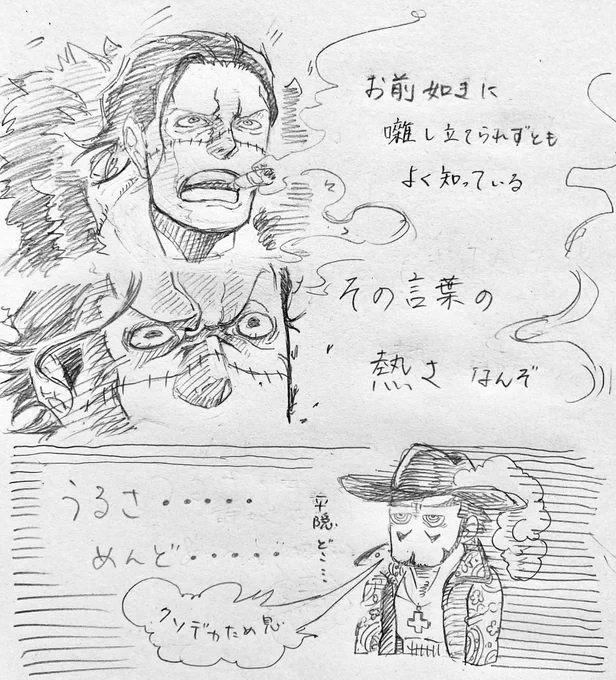 お前如きに
囃し立てられずとも
よく知っている
その言葉の
熱さなんぞ
うるさ・・・・・
めんど・・・・・
平隠どこ…
クソデカため息